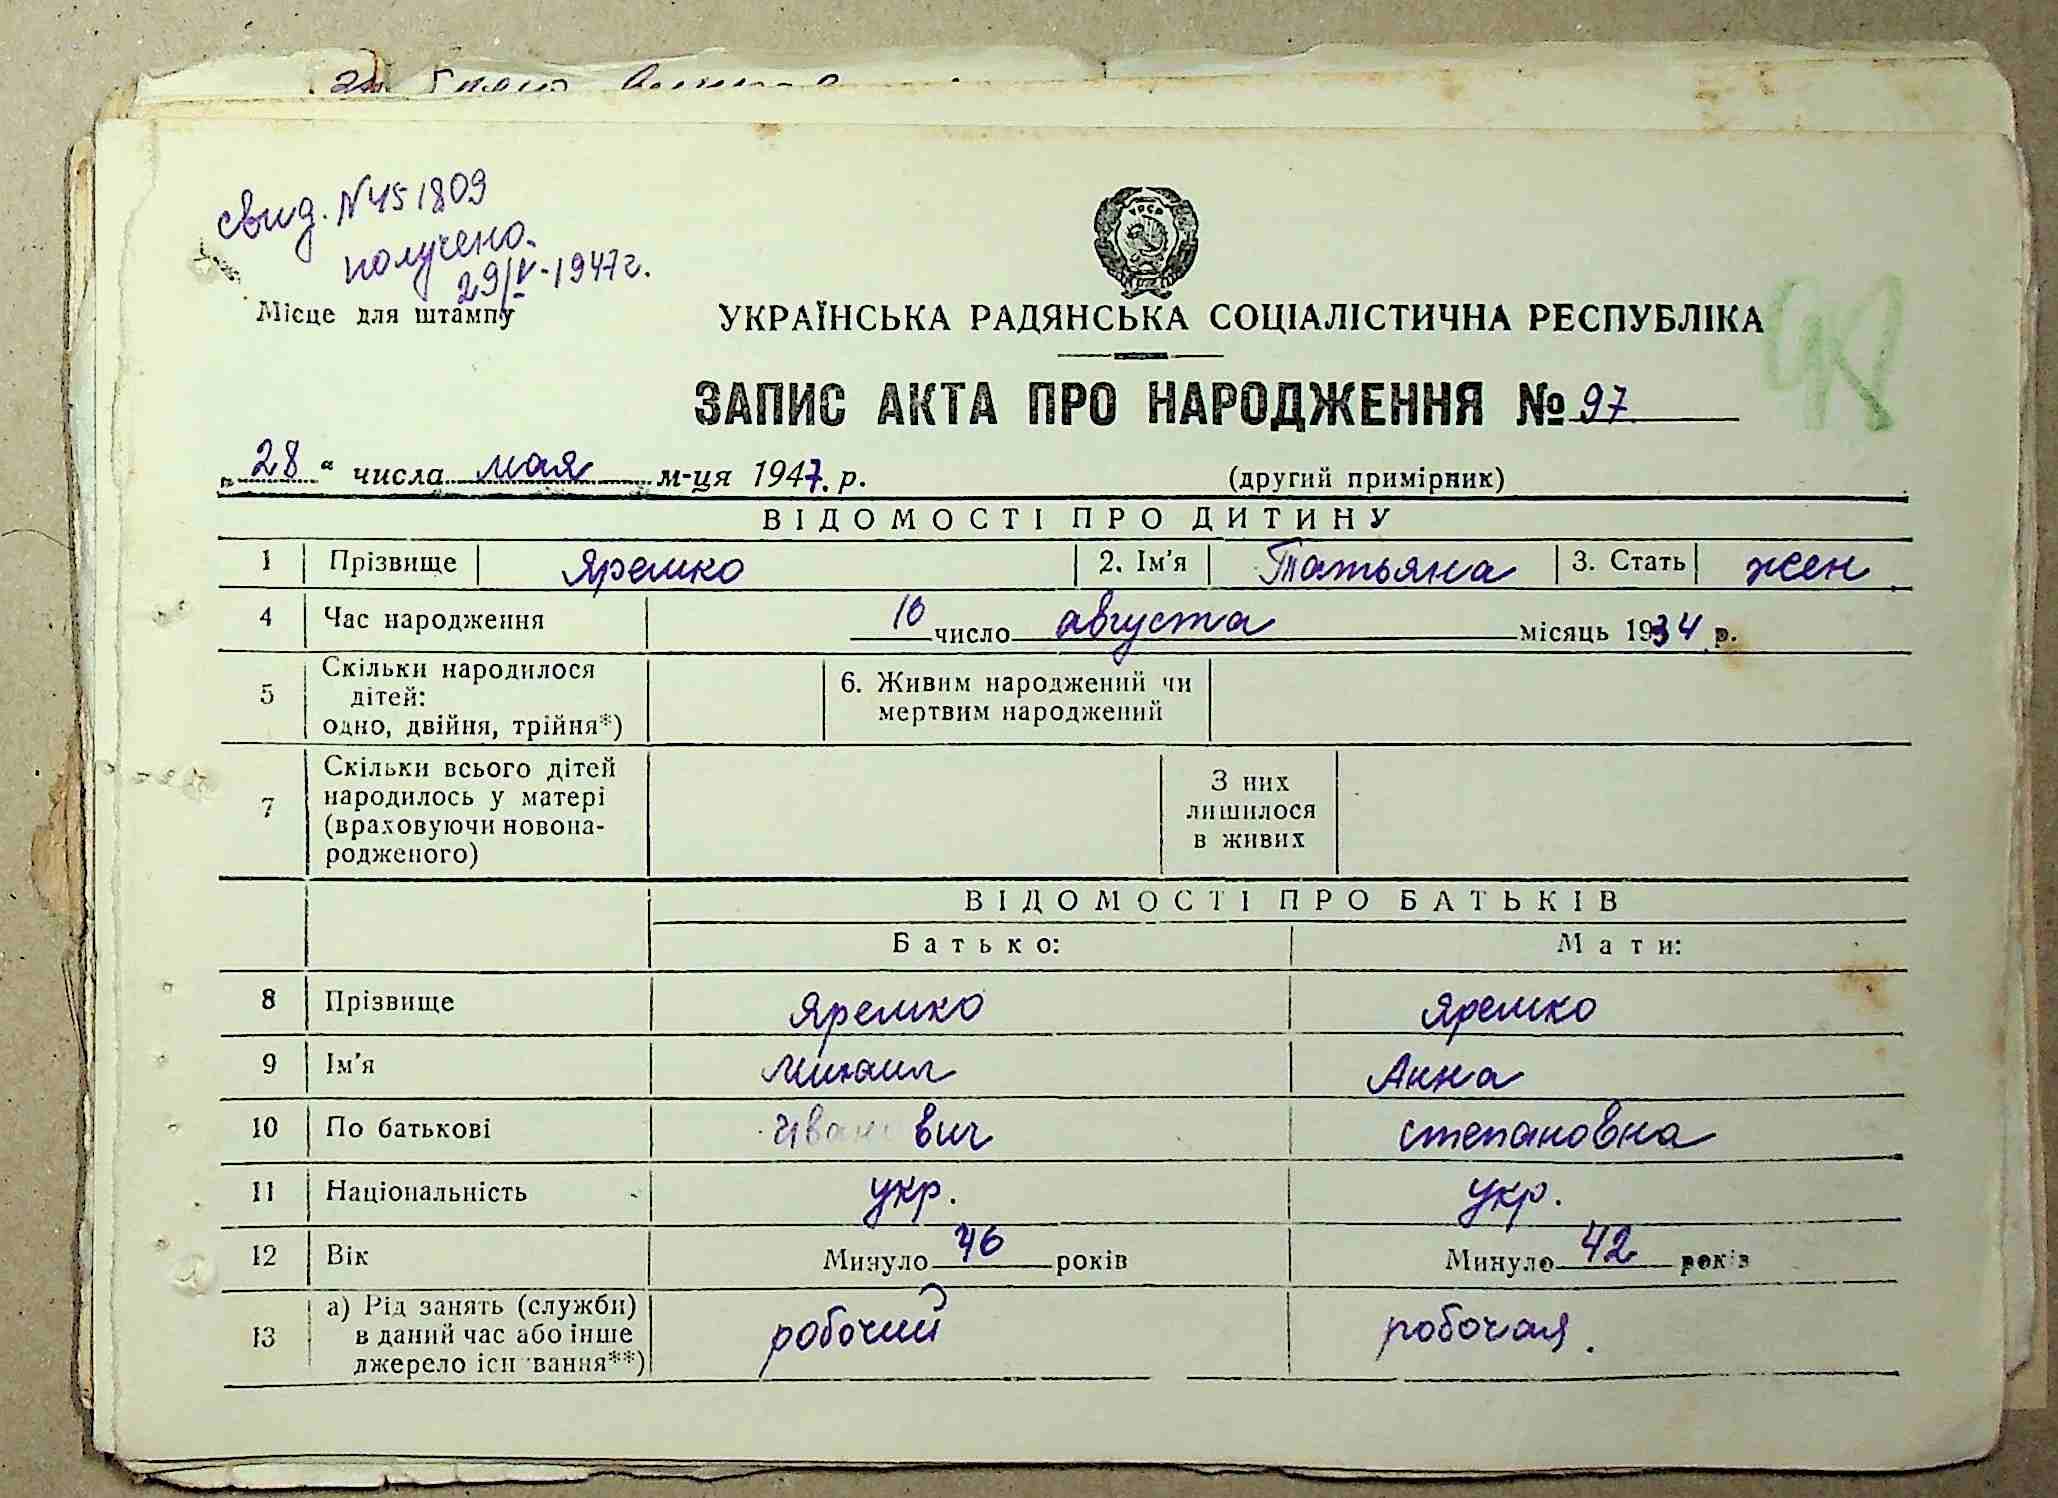 свид. N451809
получено.
29/V-1947г.
Місце для штампу
УРСР
УКРАЇНСЬКА РАДЯНСЬКА СОЦІАЛІСТИЧНА РЕСПУБЛІКА
ЗАПИС АКТА ПРО НАРОДЖЕННЯ № 97
98
„28“ числа мая м-ця 1947. р. (другий примірник)
ВІДОМОСТІ ПРО ДИТИНУ
1 Прізвище Яремко 2. Ім'я Татьяна 3. Стать жен
4 Час народження 10 число августа місяць 1934 р.
5 Скільки народилося
дітей:
одно, двійня, трійня*)
6. Живим народжений чи
мертвим народжений
7 Скільки всього дітей
народилось у матері
(враховуючи новона-
родженого)
З них
лишилося
в живих
ВІДОМОСТІ ПРО БАТЬКІВ
Батько: Мати:
8 Прізвище Яремко Яремко
9 Ім'я Михаил Анна
10 По батькові Иванович степановна
11 Національність укр. укр.
12 Вік Минуло 46 років Минуло 42 років
13 а) Рід занять (служби)
в даний час або інше
джерело існування**)
робочий робочая.